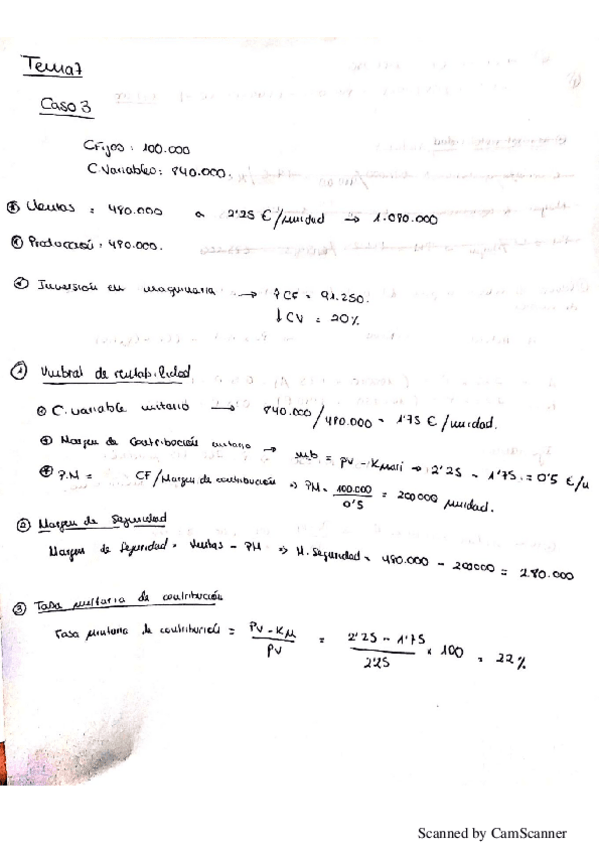 Tema 7
Caso 3
C Fijos : 100.000
C. Variables : 840.000.
Ventas = 480.000 a 2'25 €/unidad → 1.080.000
Producción : 480.000.
Inversión en maquinaria → ↑ CF = 91.250.
↓ CV = 20%
① Umbral de rentabilidad
C. variable unitario → 840.000/480.000 = 1'75 €/unidad.
Margen de contribución unitario → mb = PV - Kvari → 2'25 - 1'75 = 0'5 €/u
P.M = CF/Margen de contribución ⇒ PM = 100.000/0'5 = 200000 unidad.
② Margen de Seguridad
Margen de Seguridad = Ventas - PM ⇒ M. Seguridad = 480.000 - 200000 = 280.000
③ Tasa unitaria de contribución
Tasa unitaria de contribución = PV - Kμ / PV = 2'25 - 1'75 / 2'25 * 100 = 22%
Scanned by CamScanner